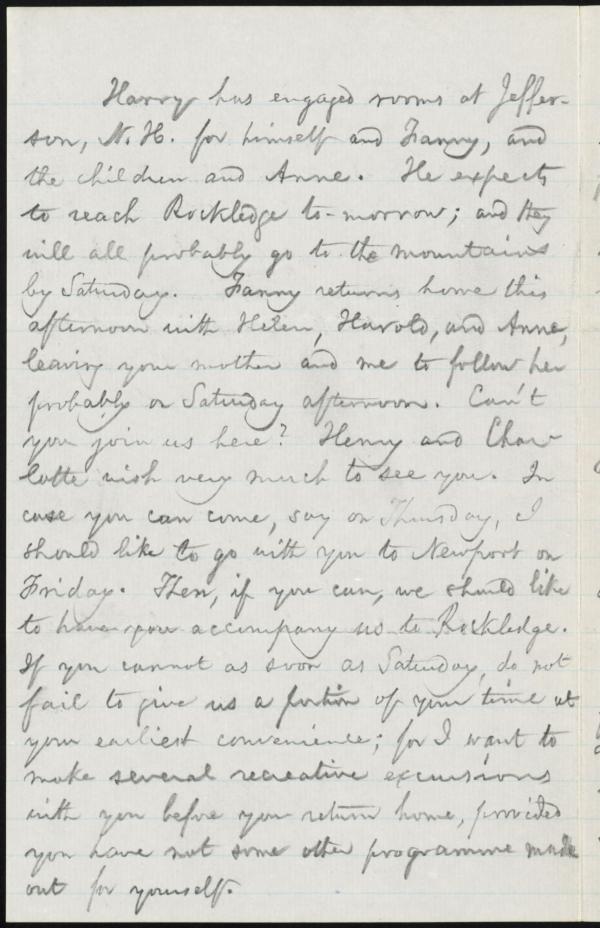 Harry has engaged rooms at Jeffer-
son, N. H. for himself and Fanny, and
the children and Anne. He expects
to reach Rockledge to-morrow; and they
will all probably go to the mountains
by Saturday. Fanny returns home this
afternoon with Helen, Harold, and Anne,
leaving your mother and me to follow her
probably on Saturday afternoon. Can't
you join us here? Henry and Char-
lotte wish very much to see you. In
case you can come, say on Thursday, I
should like to go with you to Newport on
Friday. Then, if you can, we should like
to have you accompany us to Rockledge.
If you cannot as soon as Saturday, do not
fail to give us a portion of your time at
your earliest convenience; for I want to
make several recreative excursions
with you before you return home, provided
you have not some other programme made
out for yourself.